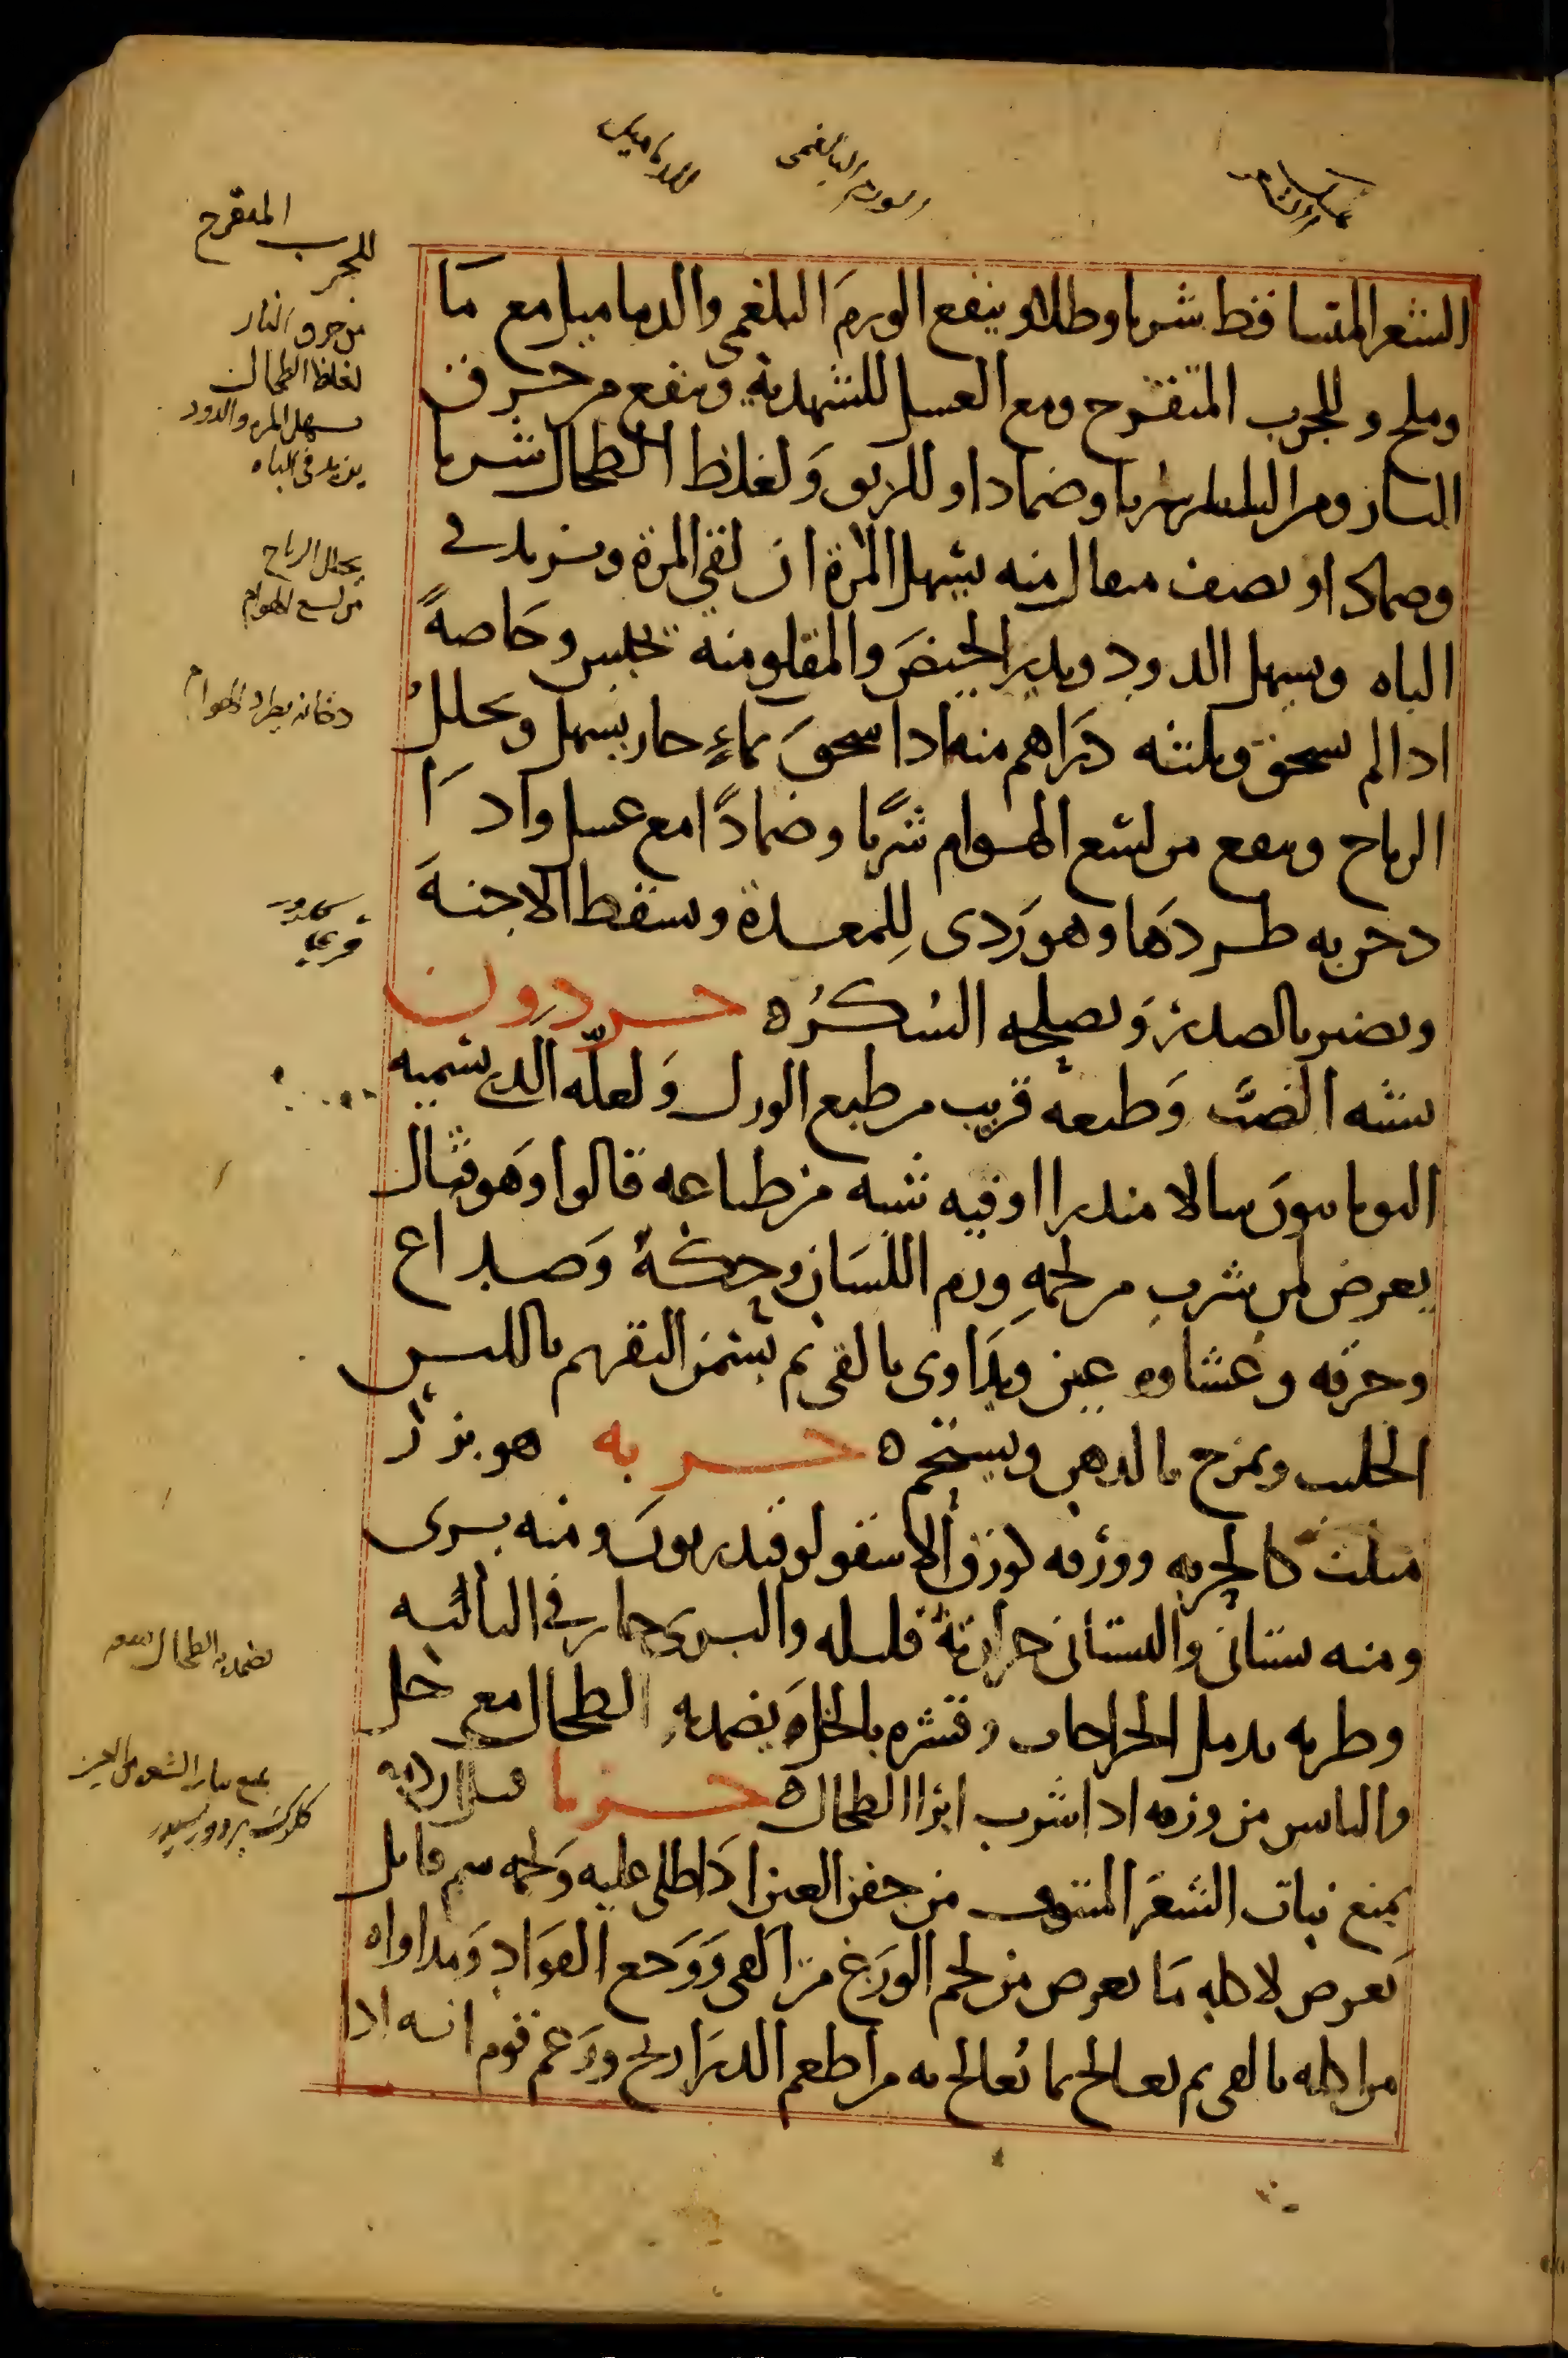 الشعر المتساقط شربا وطلاء و ينفع الورم البلغمي والدماميل مع ما
وملح و للجرب المتقرح ومع العسل للشهدية وينفع من حرق
النار ومن شربا وضمادا و للربو ولغلظ الطحال شربا
وضمادا و نصف مثقال منه يسهل المرة ان لقي المرة ويزيد في
الباه ويسهل الدود ويدر الحيض والمقلو منه يحبس وخاصة
اذا لم يسحق وثلثه دراهم منه اذا سحق بماء حار يسهل ويحلل
الرياح وينفع من لسع الهوام شربا وضمادا مع عسل واذا
دخن به طردها وهو ردى للمعدة ويسقط الاجنة
ويضر بالصدر ويصلحه السكر ه حردون
يشبه الضب وطبعه قريب من طبع الورل ولعله الذي يسميه
اليونانيون سالامندرا او فيه شبه من طباعه قالوا وهو قتال
يعرض لمن شرب من لحمه ورم اللسان وحكة وصداع
وحرقه وغشاوه عين ويداوى بالقى ثم بسمن البقر ثم باللبن
الحليب ويمرخ بالدهن ويستحم ه حربه هو بزر
مثلث كالحربه وورقه كورق الاسقولوقندريون ومنه برى
ومنه بستانى والبستانى حرارته قليله والبرى حار في الثالثه
وطريه يدمل الجراحات وقشره بالخل يضمد به الطحال مع خل
واليابس من ورقه اذا شرب ابرا الطحال ه حربا
يمنع نبات الشعر المنتوف من جفن العين اذا طلى عليه ولحمه سم قاتل
يعرض لاكله ما يعرض من لحم الوزغ من القى ووجع الفواد ومداواه
من اكله بالقى ثم يعالج بما يعالج به من اطعم الذراريح وزعم قوم انه اذا
للدماميل
الورم البلغمى
للجرب المتقرح
من حرق النار
لغلظ الطحال
يسهل المره والدود
يزيد فى الباه
يحلل الرياح
من لسع الهوام
دخانه يطرد الهوام
يضمد به الطحال
يمنع نبات الشعر من العين